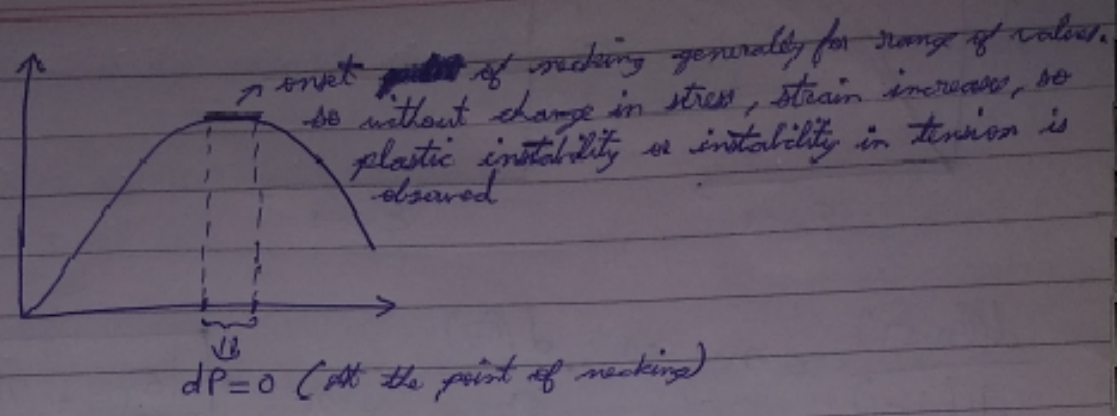 onset of necking generally for range of values.
so without change in stress, strain increases, so
plastic instability or instability in tension is
observed
dP=0 (At the point of necking)